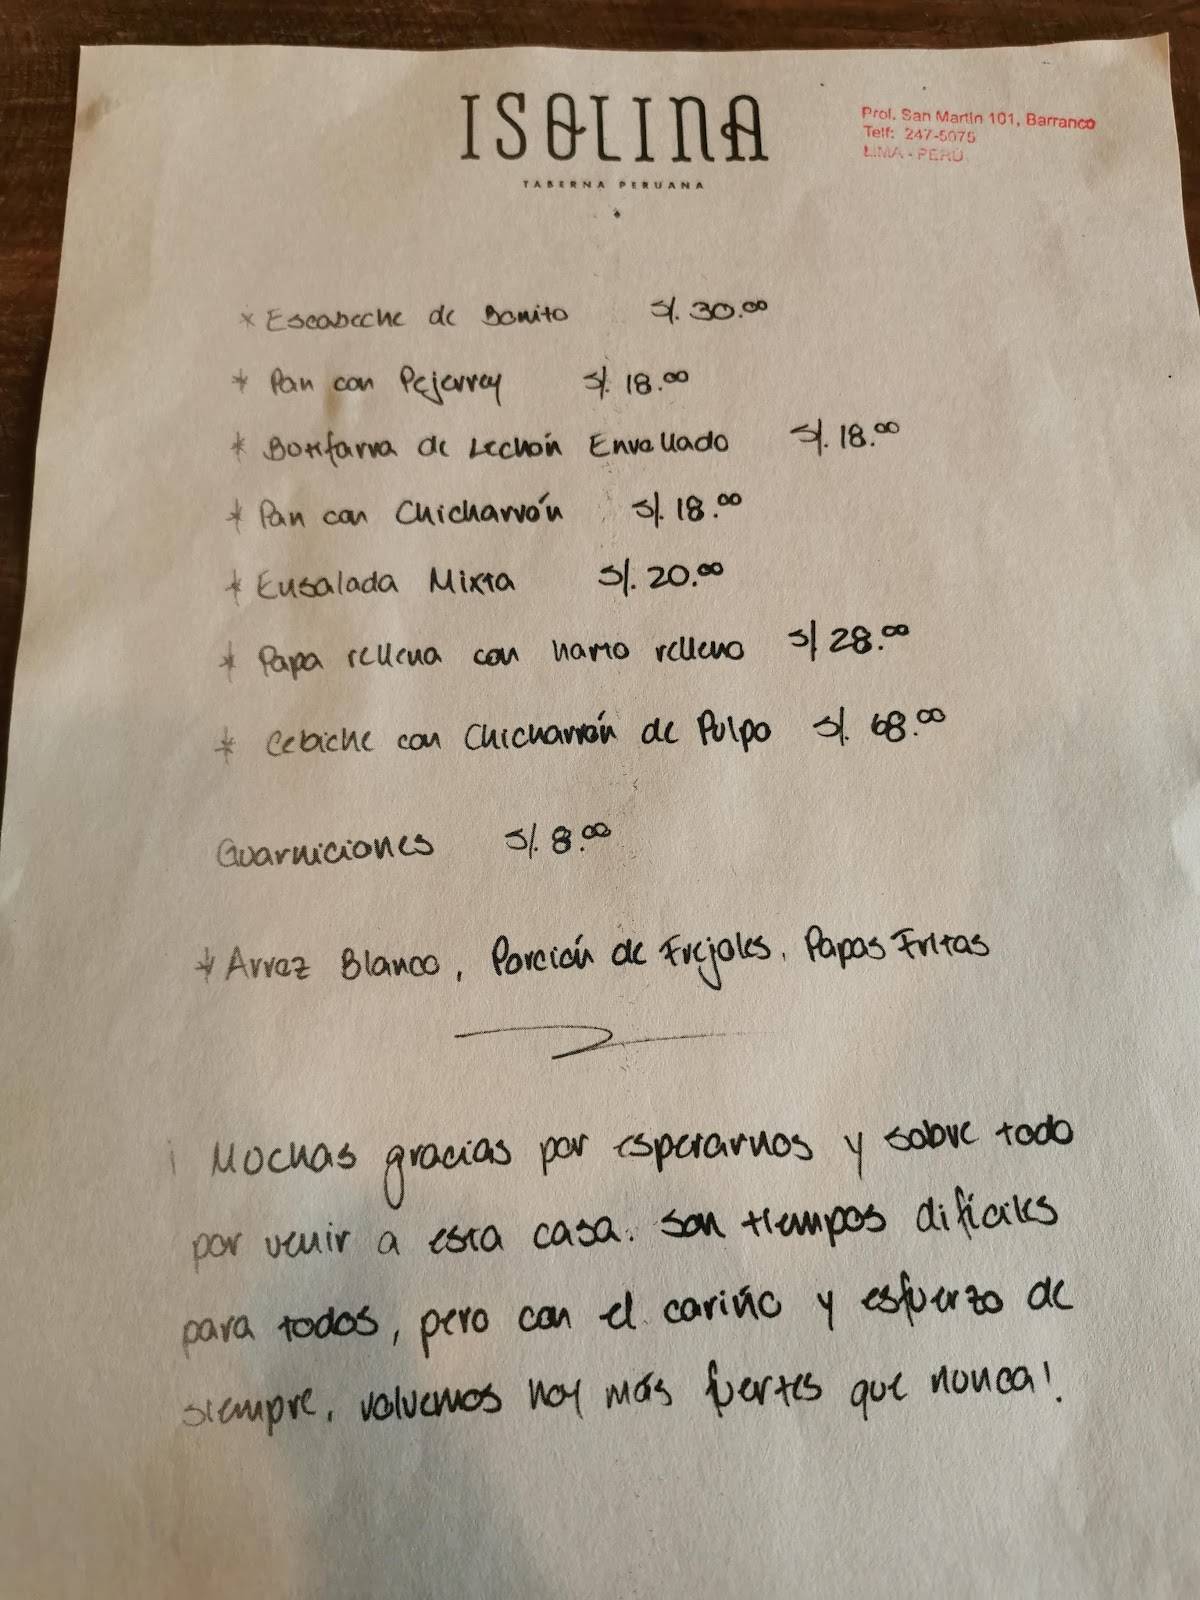 ISOLINA
TABERNA PERUANA
Prol. San Martin 101, Barranco
Telf: 247-5075
LIMA - PERÚ
* Escabeche de Bonito S/. 30.00
* Pan con Pejerrey S/. 18.00
* Butifarra de Lechón Enrollado S/. 18.00
* Pan con Chicharrón S/. 18.00
* Ensalada Mixta S/. 20.00
* Papa rellena con harto relleno S/ 28.00
* Cebiche con Chicharrón de Pulpo S/. 68.00
Guarniciones S/. 8.00
* Arroz Blanco, Porción de Frejoles, Papas Fritas
¡Muchas gracias por esperarnos y sobre todo
por venir a esta casa. Son tiempos difíciles
para todos, pero con el cariño y esfuerzo de
siempre, volvemos hoy más fuertes que nunca!